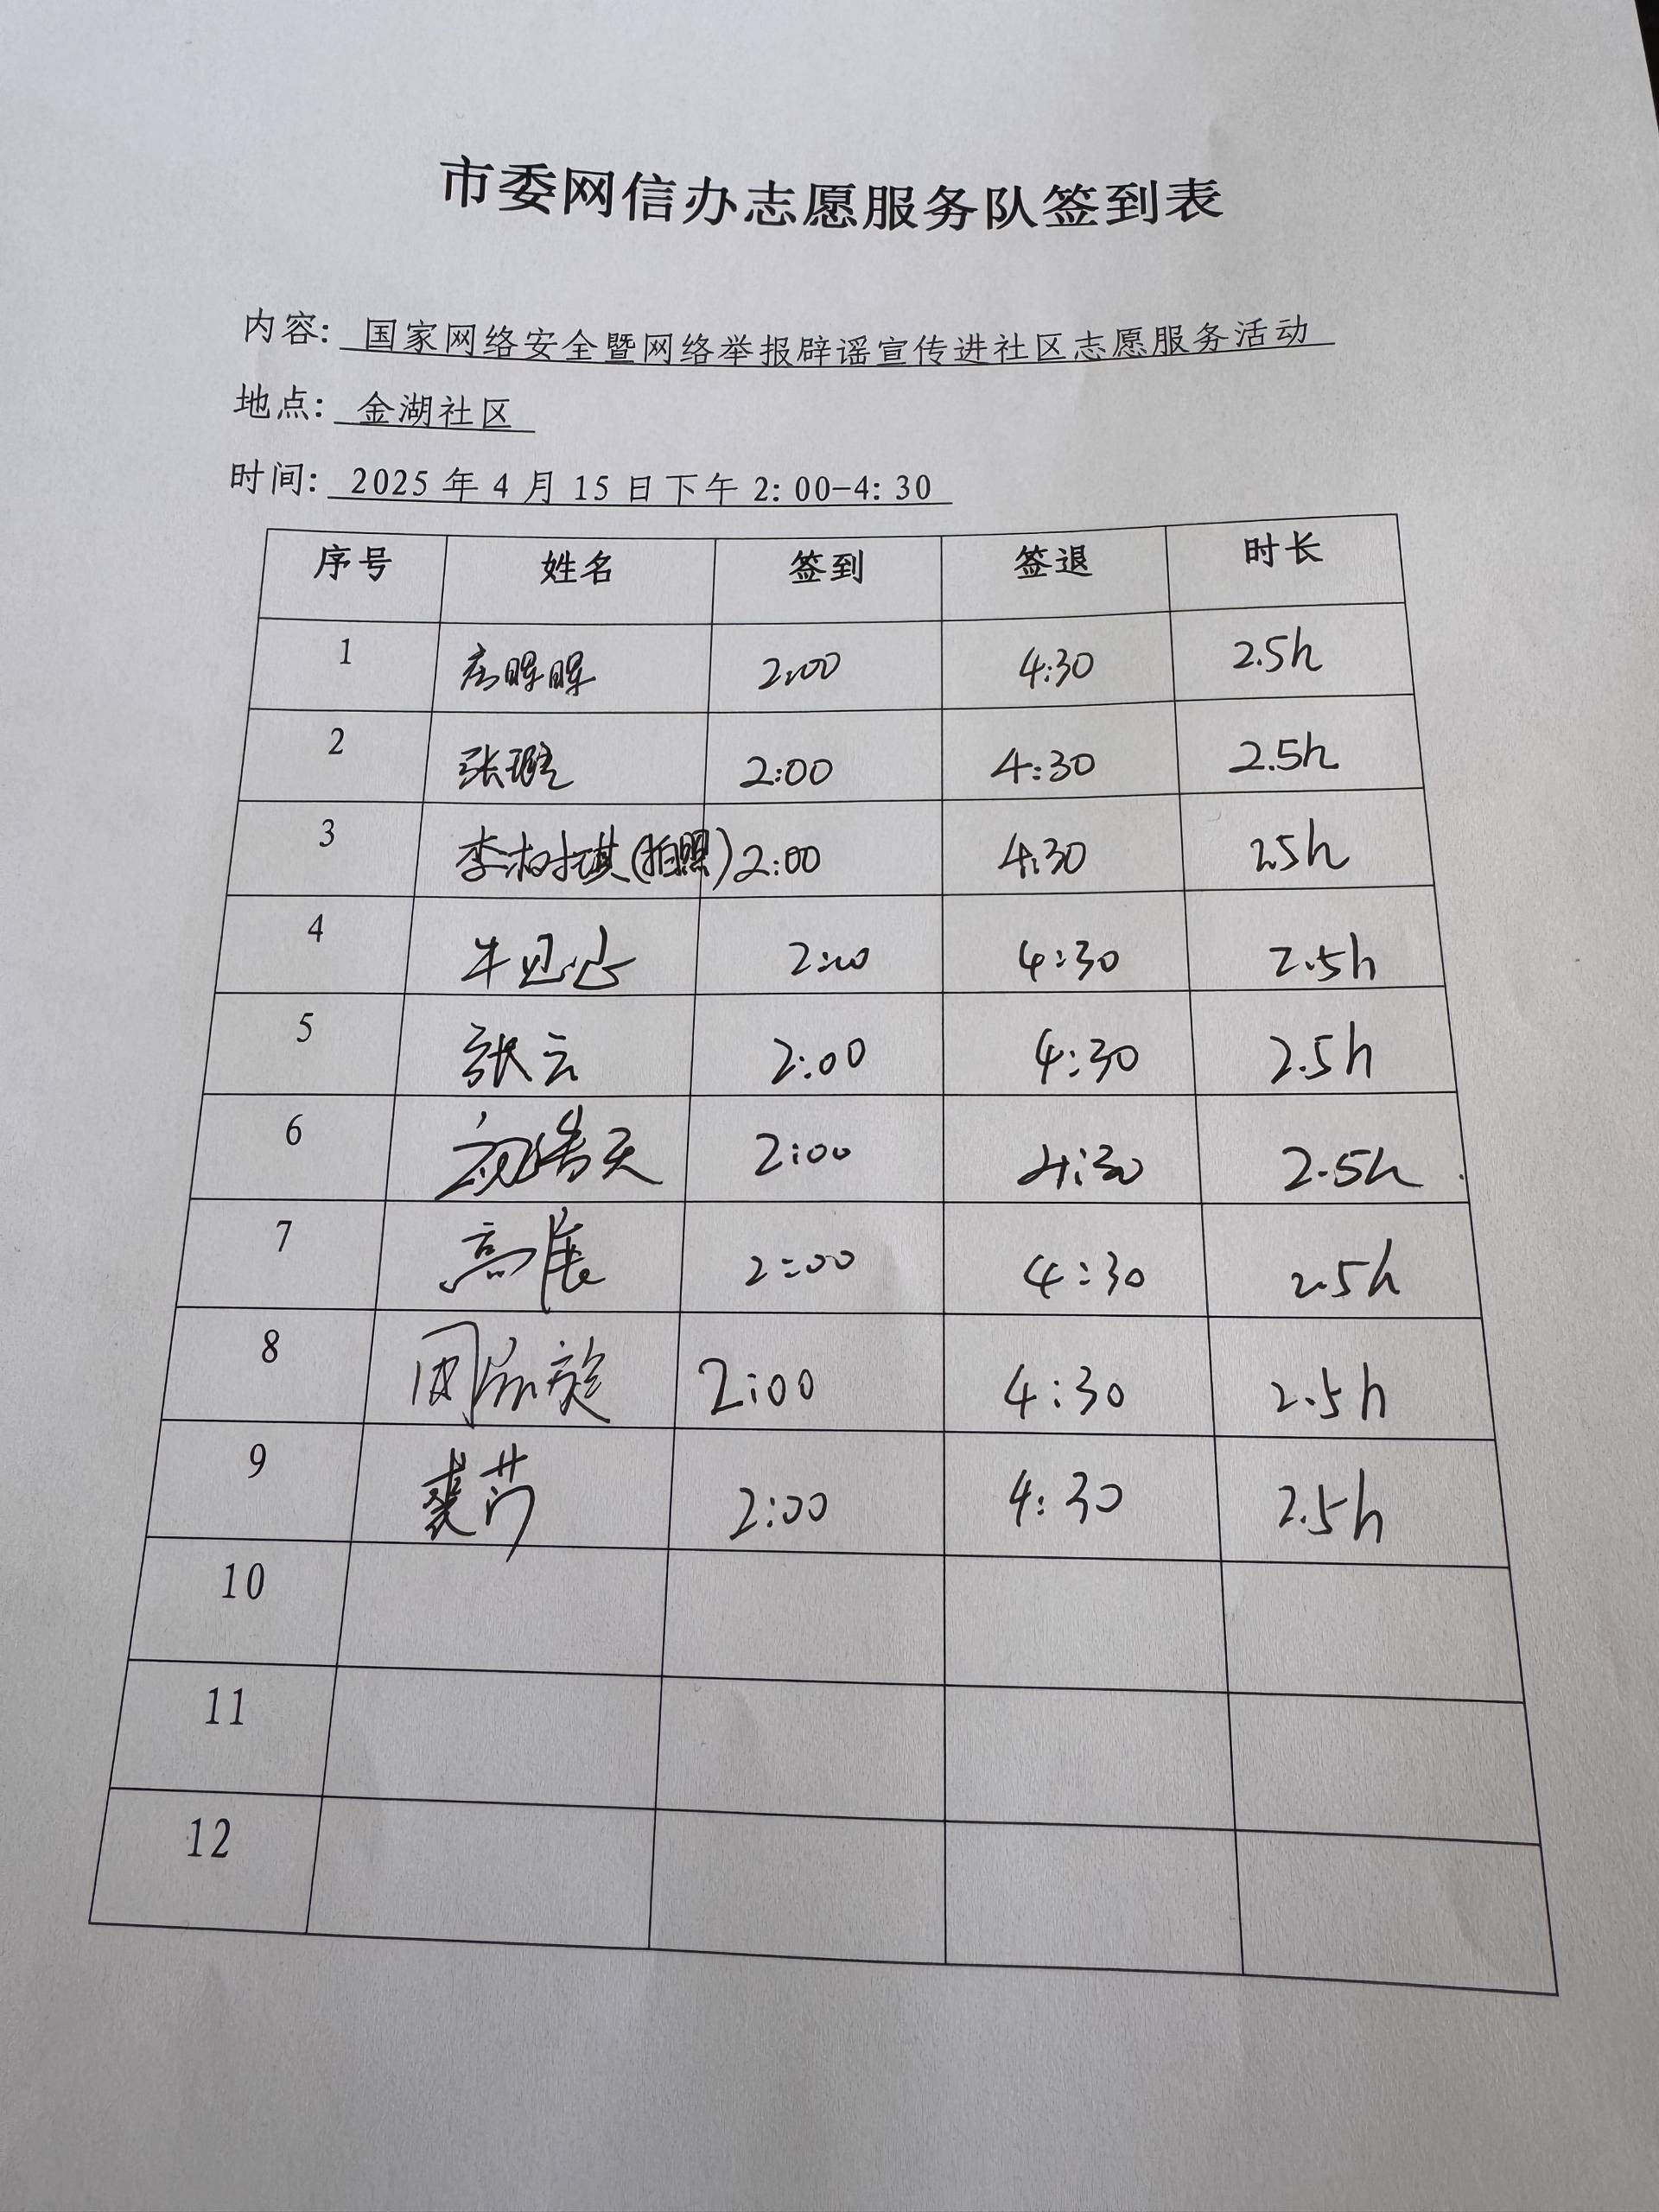 市委网信办志愿服务队签到表
内容: 国家网络安全暨网络举报辟谣宣传进社区志愿服务活动
地点: 金湖社区
时间: 2025年4月15日下午2:00-4:30
序号 姓名 签到 签退 时长
1 2:00 4:30 2.5h
2 张 2:00 4:30 2.5h
3 李树琪(拍照) 2:00 4:30 2.5h
4 牛 2:00 4:30 2.5h
5 张云 2:00 4:30 2.5h
6 浩天 2:00 4:30 2.5h
7 高 2:00 4:30 2.5h
8 周 2:00 4:30 2.5h
9 裴 2:00 4:30 2.5h
10
11
12